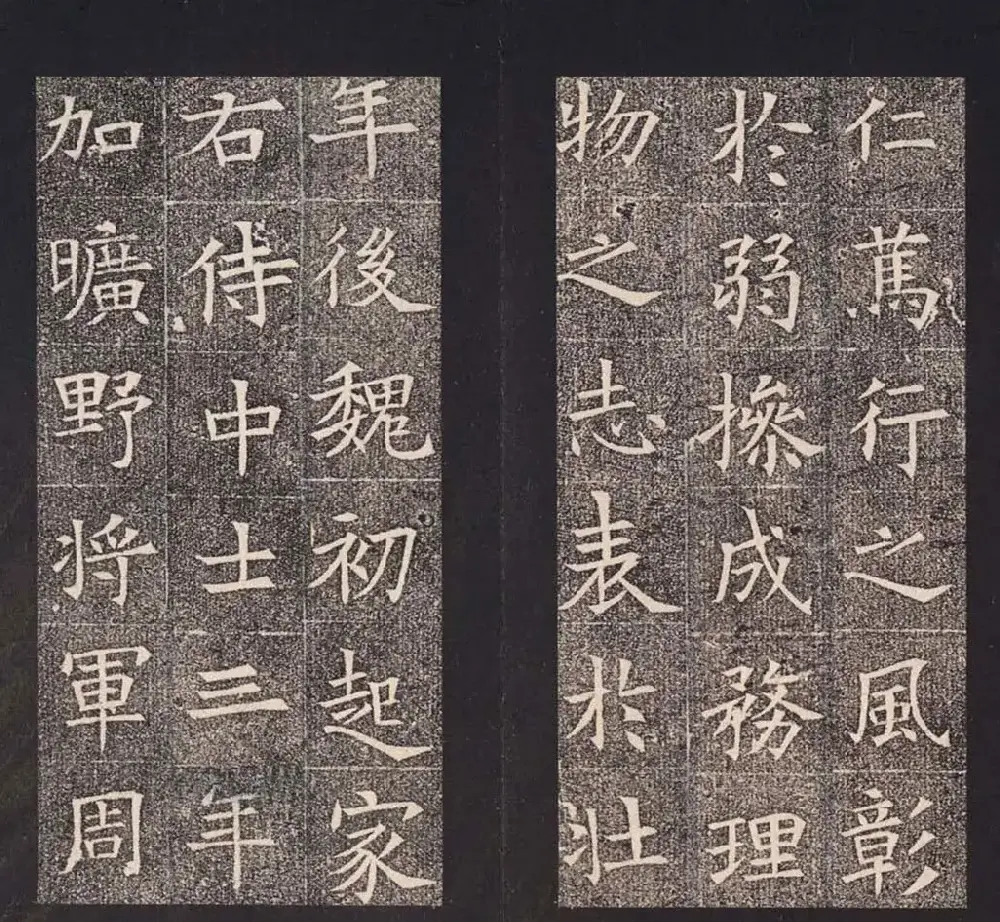 仁篤行之風彰
於弱操成務理
物之志表於壯
年後魏初起家
右侍中士三年
加曠野将軍周